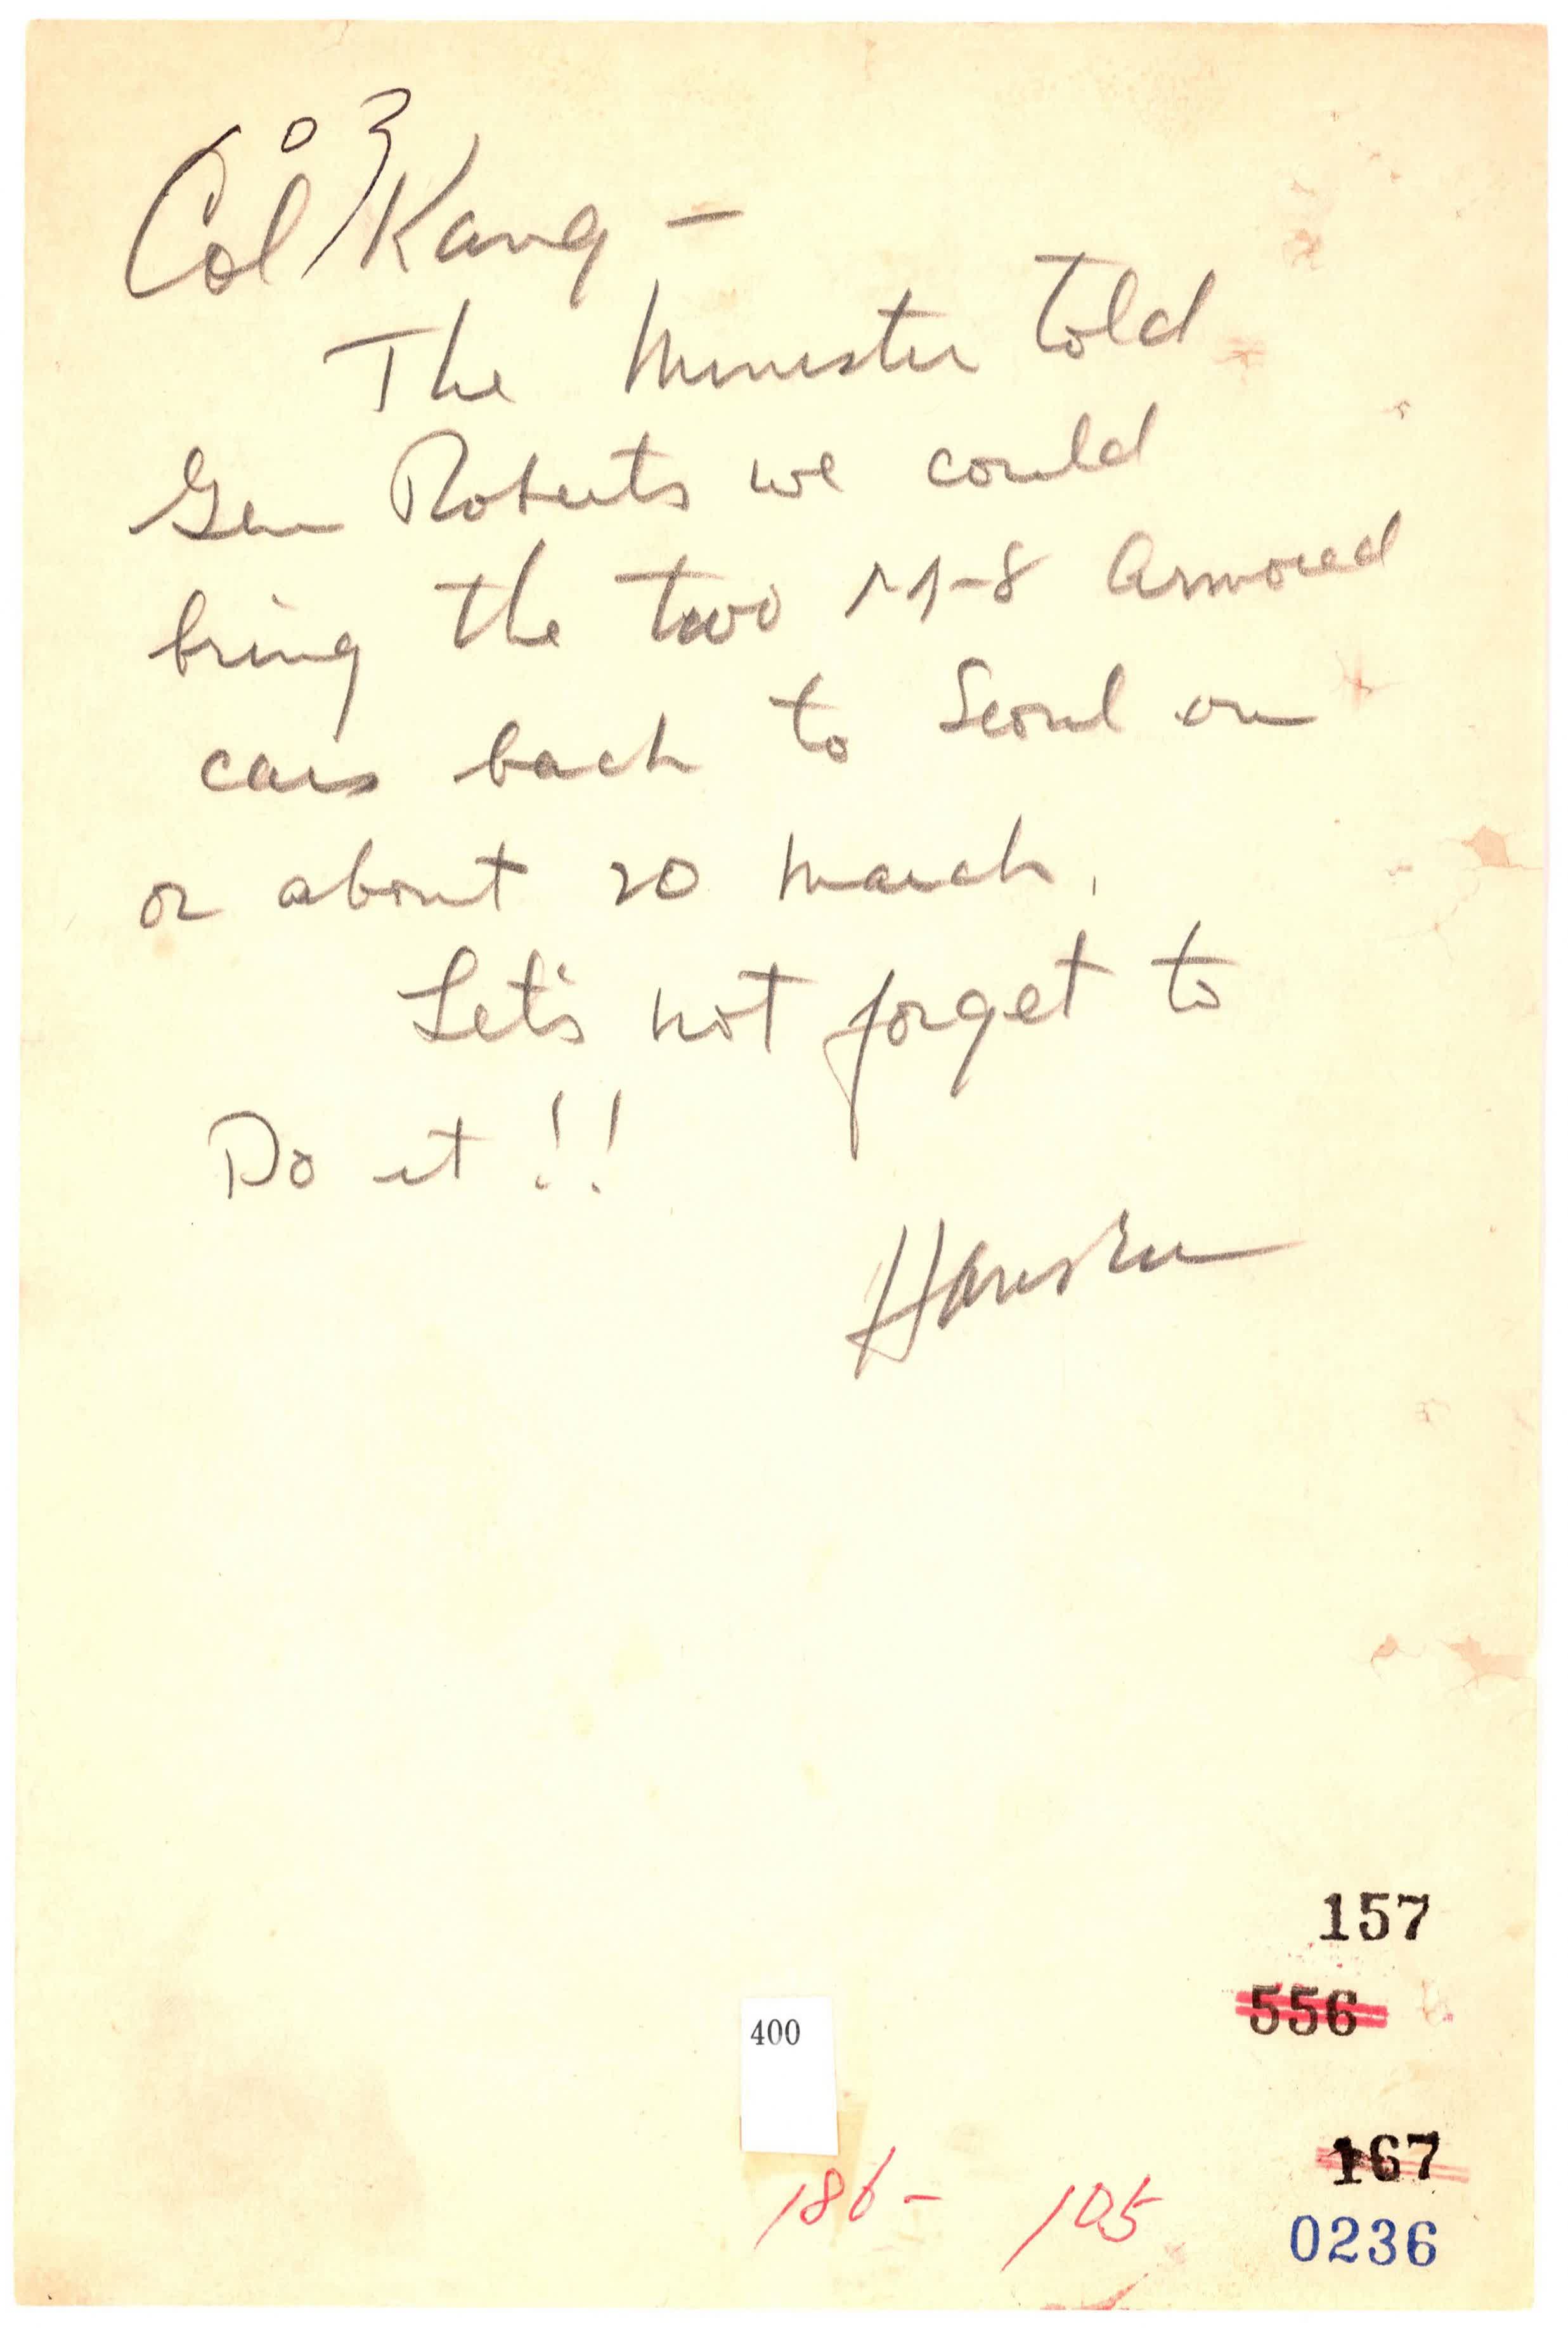 Col Kang —
The Minister told
Gen Roberts we could
bring the two M-8 Armored
cars back to Seoul on
or about 20 March.
Let's not forget to
Do it!!
157
556
400
167
186- 105
0236